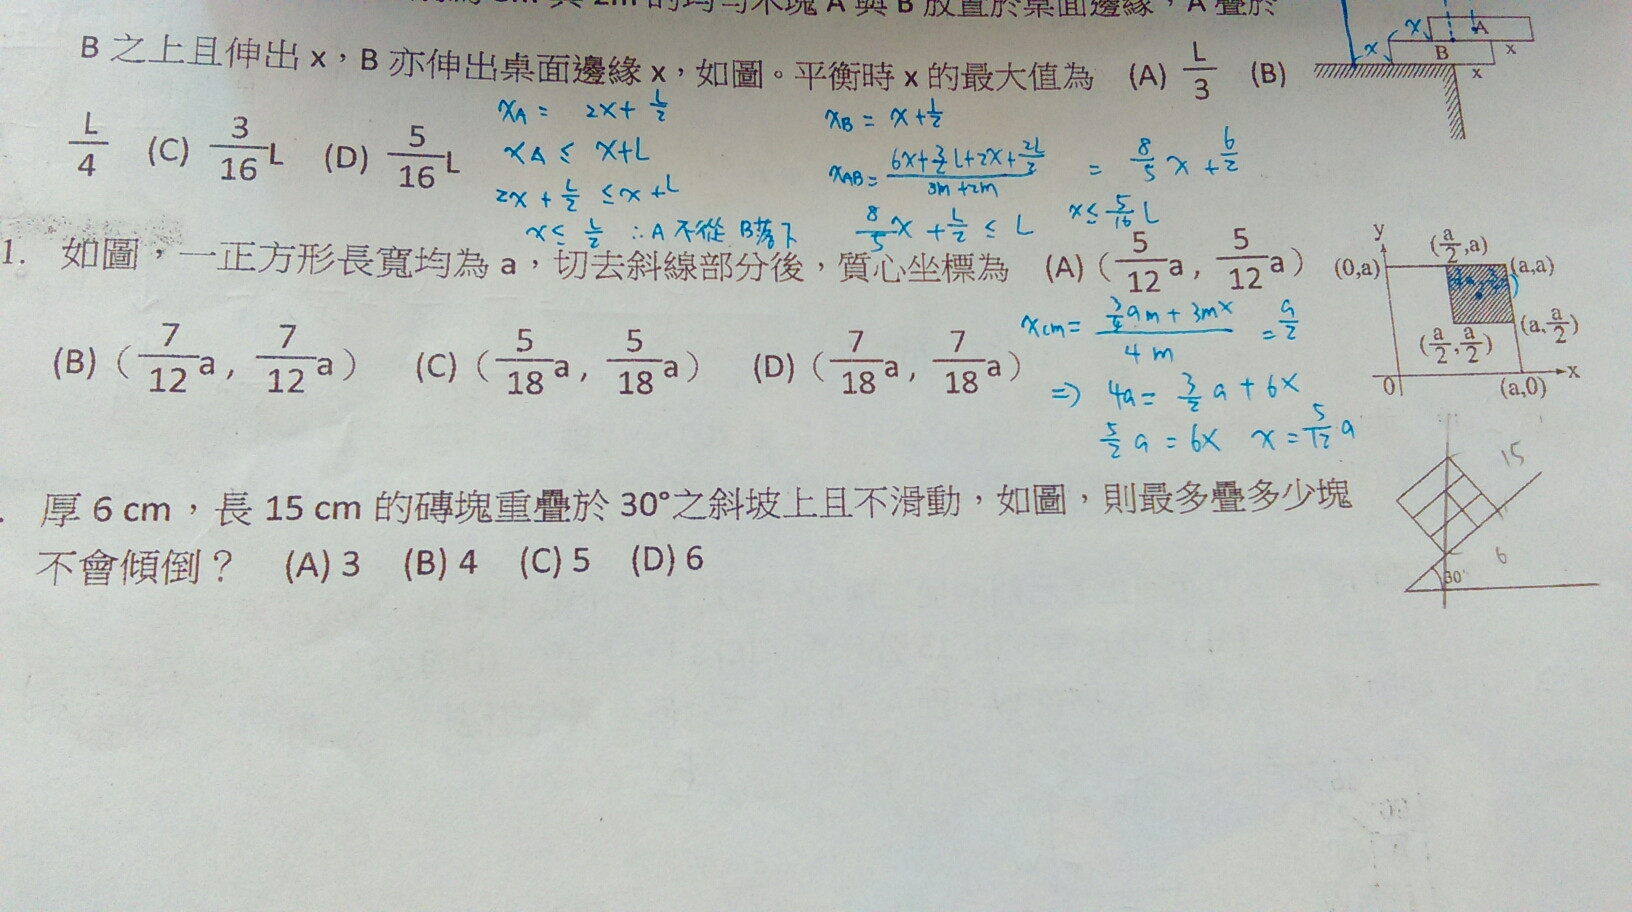 3m 與 2m 的均勻木塊 A 與 B 放置於桌面邊緣，A 疊於
B 之上且伸出 x，B 亦伸出桌面邊緣 x，如圖。平衡時 x 的最大值為 (A) L/3 (B)
L/4 (C) 3/16 L (D) 5/16 L
x_A = 2x + L/2
x_A ≤ x+L
2x + L/2 ≤ x + L
x ≤ L/2 ∴ A 不從 B落下
x_B = x + L/2
x_AB = (6x + 3/2 L + 2x + 2L/2)/(3m + 2m) = 8/5 x + L/2
8/5 x + L/2 ≤ L x ≤ 5/16 L
x
A
B
x
x
x
1. 如圖，一正方形長寬均為 a，切去斜線部分後，質心坐標為 (A)（5/12 a, 5/12 a）
(B)（7/12 a, 7/12 a） (C)（5/18 a, 5/18 a） (D)（7/18 a, 7/18 a）
x_cm = (3/4 am + 3mx)/(4m) = a/2
=> 4a = 3/2 a + 6x
5/2 a = 6x x = 5/12 a
y
(a/2,a)
(0,a)
(a,a)
(a/2,a/2)
(a,a/2)
0
(a,0)
x
. 厚 6 cm，長 15 cm 的磚塊重疊於 30°之斜坡上且不滑動，如圖，則最多疊多少塊
不會傾倒？ (A) 3 (B) 4 (C) 5 (D) 6
15
6
30°